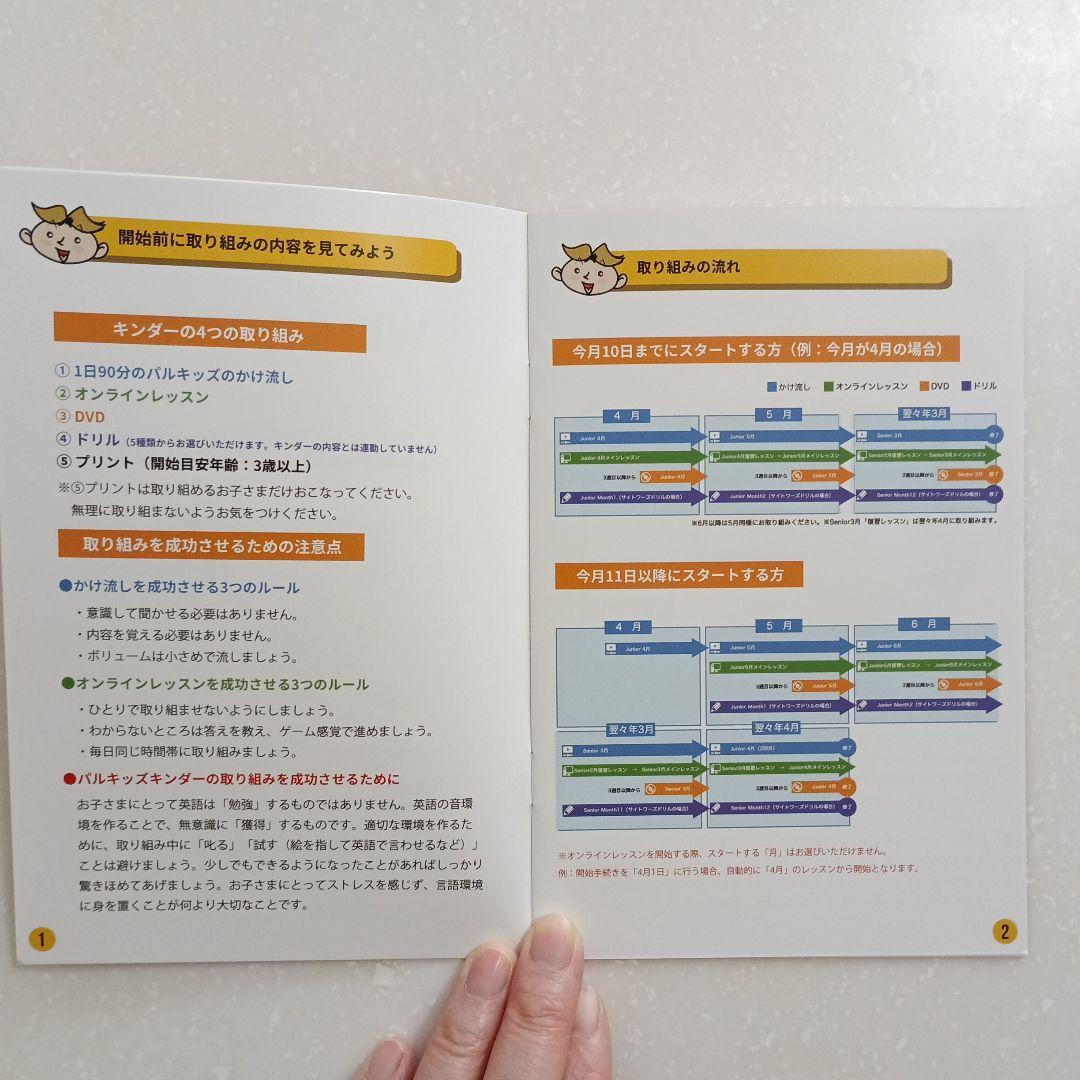 開始前に取り組みの内容を見てみよう
キンダーの4つの取り組み
① 1日90分のパルキッズのかけ流し
② オンラインレッスン
③ DVD
④ ドリル（5種類からお選びいただけます。キンダーの内容とは連動していません）
⑤ プリント（開始目安年齢：3歳以上）
※⑤プリントは取り組めるお子さまだけおこなってください。
無理に取り組まないようお気をつけください。
取り組みを成功させるための注意点
●かけ流しを成功させる3つのルール
・意識して聞かせる必要はありません。
・内容を覚える必要はありません。
・ボリュームは小さめで流しましょう。
●オンラインレッスンを成功させる3つのルール
・ひとりで取り組ませないようにしましょう。
・わからないところは答えを教え、ゲーム感覚で進めましょう。
・毎日同じ時間帯に取り組みましょう。
●パルキッズキンダーの取り組みを成功させるために
お子さまにとって英語は「勉強」するものではありません。英語の音環
境を作ることで、無意識に「獲得」するものです。適切な環境を作るた
めに、取り組み中に「叱る」「試す（絵を指して英語で言わせるなど）」
ことは避けましょう。少しでもできるようになったことがあればしっかり
驚きほめてあげましょう。お子さまにとってストレスを感じず、言語環境
に身を置くことが何より大切なことです。
1
取り組みの流れ
今月10日までにスタートする方（例：今月が4月の場合）
かけ流し オンラインレッスン DVD ドリル
4 月 5 月 翌々年3月
Junior 4月 Junior 5月 Senior 3月 修了
Junior 4月メインレッスン Junior4月復習レッスン → Junior5月メインレッスン Senior2月復習レッスン → Senior3月メインレッスン
3週目以降から Junior 4月 3週目以降から Junior 5月 3週目以降から Senior 3月 修了
Junior Month1（サイトワーズドリルの場合） Junior Month2（サイトワーズドリルの場合） Senior Month12（サイトワーズドリルの場合） 修了
※6月以降は5月同様にお取り組みください。※Senior3月「復習レッスン」は翌々年4月に取り組みます。
今月11日以降にスタートする方
4 月 5 月 6 月
Junior 4月 Junior 5月 Junior 6月
Junior5月メインレッスン Junior5月復習レッスン → Junior6月メインレッスン
3週目以降から Junior 5月 3週目以降から Junior 6月
Junior Month1（サイトワーズドリルの場合） Junior Month2（サイトワーズドリルの場合）
翌々年3月 翌々年4月
Senior 3月 Junior 4月（2回目） 修了
Senior2月復習レッスン → Senior3月メインレッスン Senior3月復習レッスン → Junior4月メインレッスン
3週目以降から Senior 3月 3週目以降から Junior 4月 修了
Senior Month11（サイトワーズドリルの場合） Senior Month12（サイトワーズドリルの場合） 修了
※オンラインレッスンを開始する際、スタートする「月」はお選びいただけません。
例：開始手続きを「4月1日」に行う場合、自動的に「4月」のレッスンから開始となります。
2